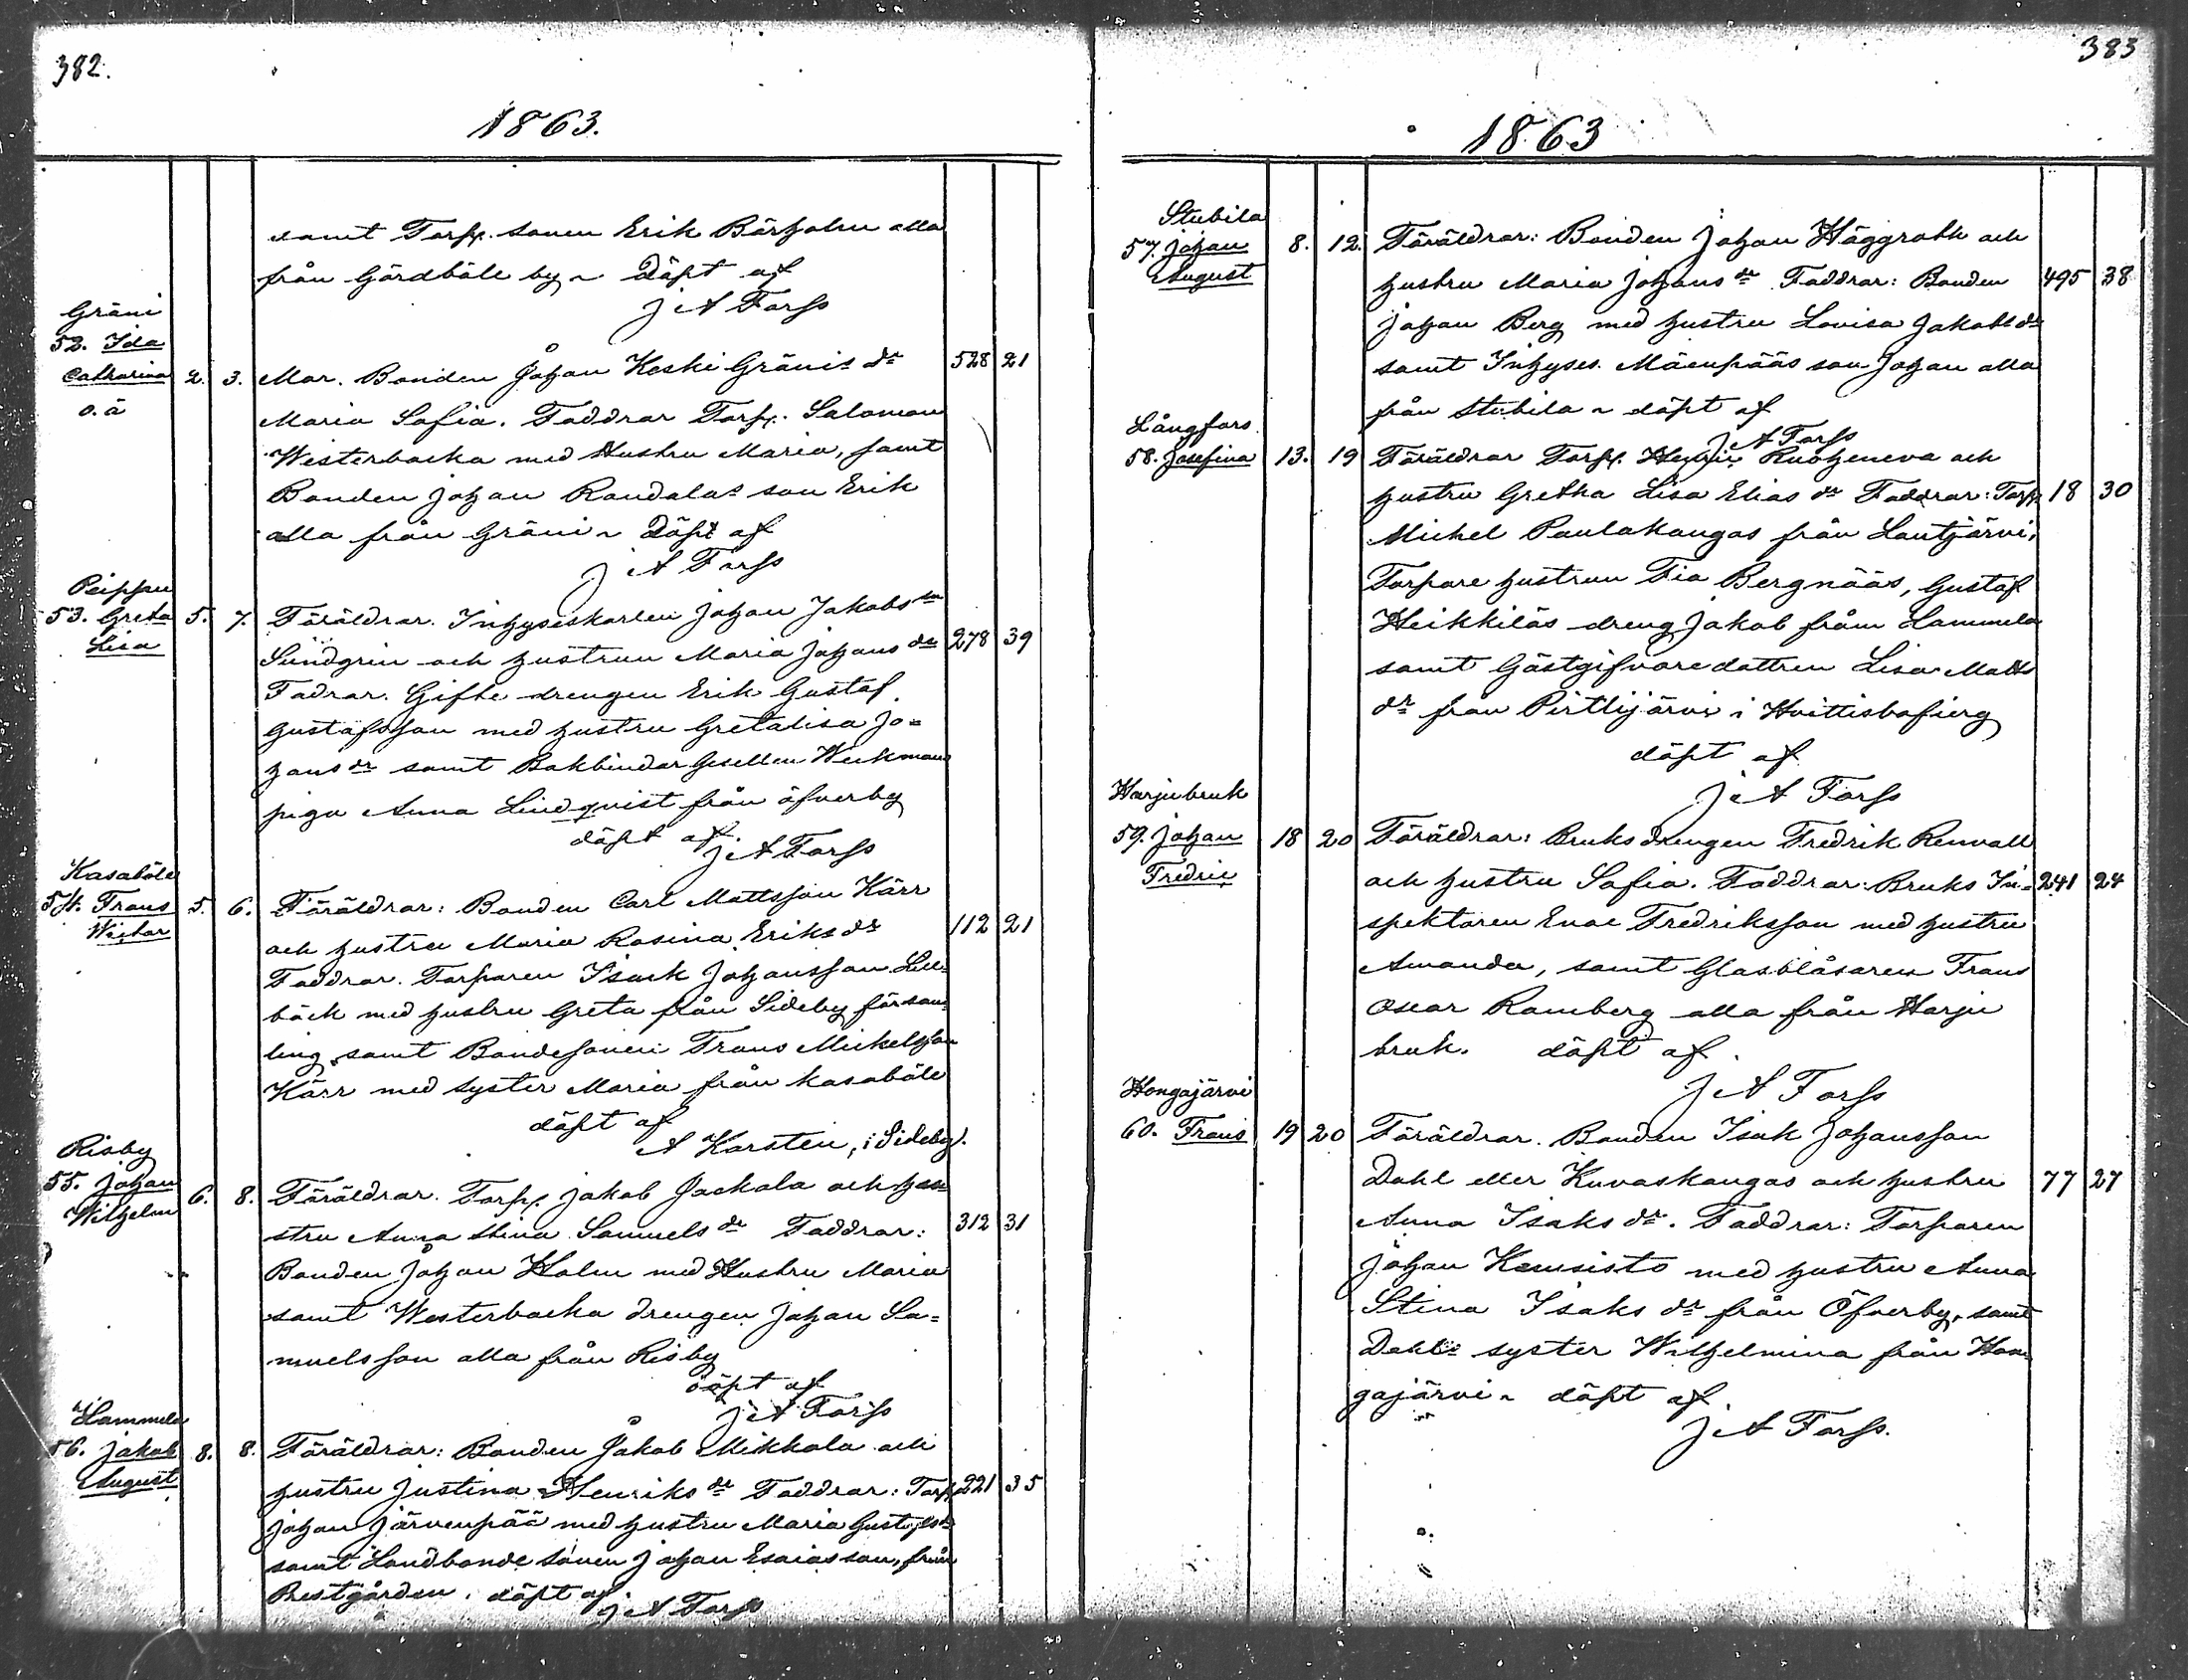 382.
1863.
samt Torp. sonen Erik Bärholm alla
från Gärdböle by ~ Döpt af
J A Forss
Gräni
52. Ida
Catharina 2. 3. Mor. Bonden Johan Koski Gränis dr 528 21
o. ä
Maria Sofia. Faddrar Torp. Salomon
Westerbacka med Hustru Maria, samt
Bonden Johan Randalas son Erik
alla från Gräni ~ Döpt af
J A Forss
Peippu
53. Greta 5. 7. Föräldrar. Inhyseskarlen Johan Jakobs sn
Lisa Sundgrin och hustrun Maria Johans dr 278 39
Fadrar. Gifte drengen Erik Gustaf
Gustafsson med hustru Gretalisa Jo=
hans dr samt Bokbindar Gesellen Weckmans
piga Anna Lindqvist från öfverby
döpt af.
J A Forss
Kasaböle
54. Frans 5. 6. Föräldrar: Bonden Carl Mattsson Kärr
Wictor och hustru Maria Rosina Eriks dr 112 21
Faddrar. Torparen Isack Johansson Lill=
bäck med hustru Greta från Sideby försam=
ling, samt Bondesonen Frans Mickelsson
Kärr med syster Maria från kasaböle
döpt af
A Karsten, i Sideby.
Risby
55. Johan 6. 8. Föräldrar. Torp. Jakob Jackala och hu=
Wilhelm
stru Anna Stina Samuels dr Faddrar: 312 31
Bonden Johan Holm med Hustru Maria
samt Westerbacka drengen Johan Sa=
muelsson alla från Risby
döpt af
J A Forss
Lammela
56. Jakob 8. 8. Föräldrar: Bonden Jakob Mikkola och
August hustru Justina Henriks dr Faddrar: Torp. 221 35
Johan Järvenpää med hustru Maria Gustafs dr
samt Landbonde sonen Johan Esaiasson, från
Prestgården. döpt af
J A Forss
383
1863
Stubila
57. Johan 8. 12. Föräldrar: Bonden Johan Häggroth och
August hustru Maria Johans dr Faddrar: Bonden 495 38
Johan Berg med hustru Lovisa Jakobs dr
samt Inhyses. Mäenpääs son Johan alla
från Stubila ~ döpt af
J A Forss
Långfors
58. Josefina 13. 19 Föräldrar Torp. Henric Ruoheneva och
hustru Gretha Lisa Elias dr Faddrar: Torp. 18 30
Michel Paulakangas från Lautjärvi,
Torpare hustrun Fia Bergnääs, Gustaf
Heikkiläs dreng Jakob från Lammela
samt Gästgifvaredottren Lisa Matts
dr från Pirttijärvi i Hvittisbofierg
döpt af
J A Forss
Harjubruk
59. Johan 18 20 Föräldrar: Bruks drengen Fredrik Renvall
Fredric och hustru Sofia. Faddrar: Bruks In= 241 24
spektoren Enoc Fredriksson med hustru
Amanda, samt Glasblåsaren Frans
Oscar Ramberg alla från Harju
bruk. döpt af
J A Forss
Hongajärvi
60. Frans 19 20 Föräldrar. Bonden Isak Johansson
Dahl eller Kuvaskangas och hustru 77 27
Anna Isaks dr. Faddrar: Torparen
Johan Kemisistö med hustru Anna
Stina Isaks dr från Öfverby, samt
Dahls syster Wilhelmina från Hon=
gajärvi ~ döpt af
J A Forss.